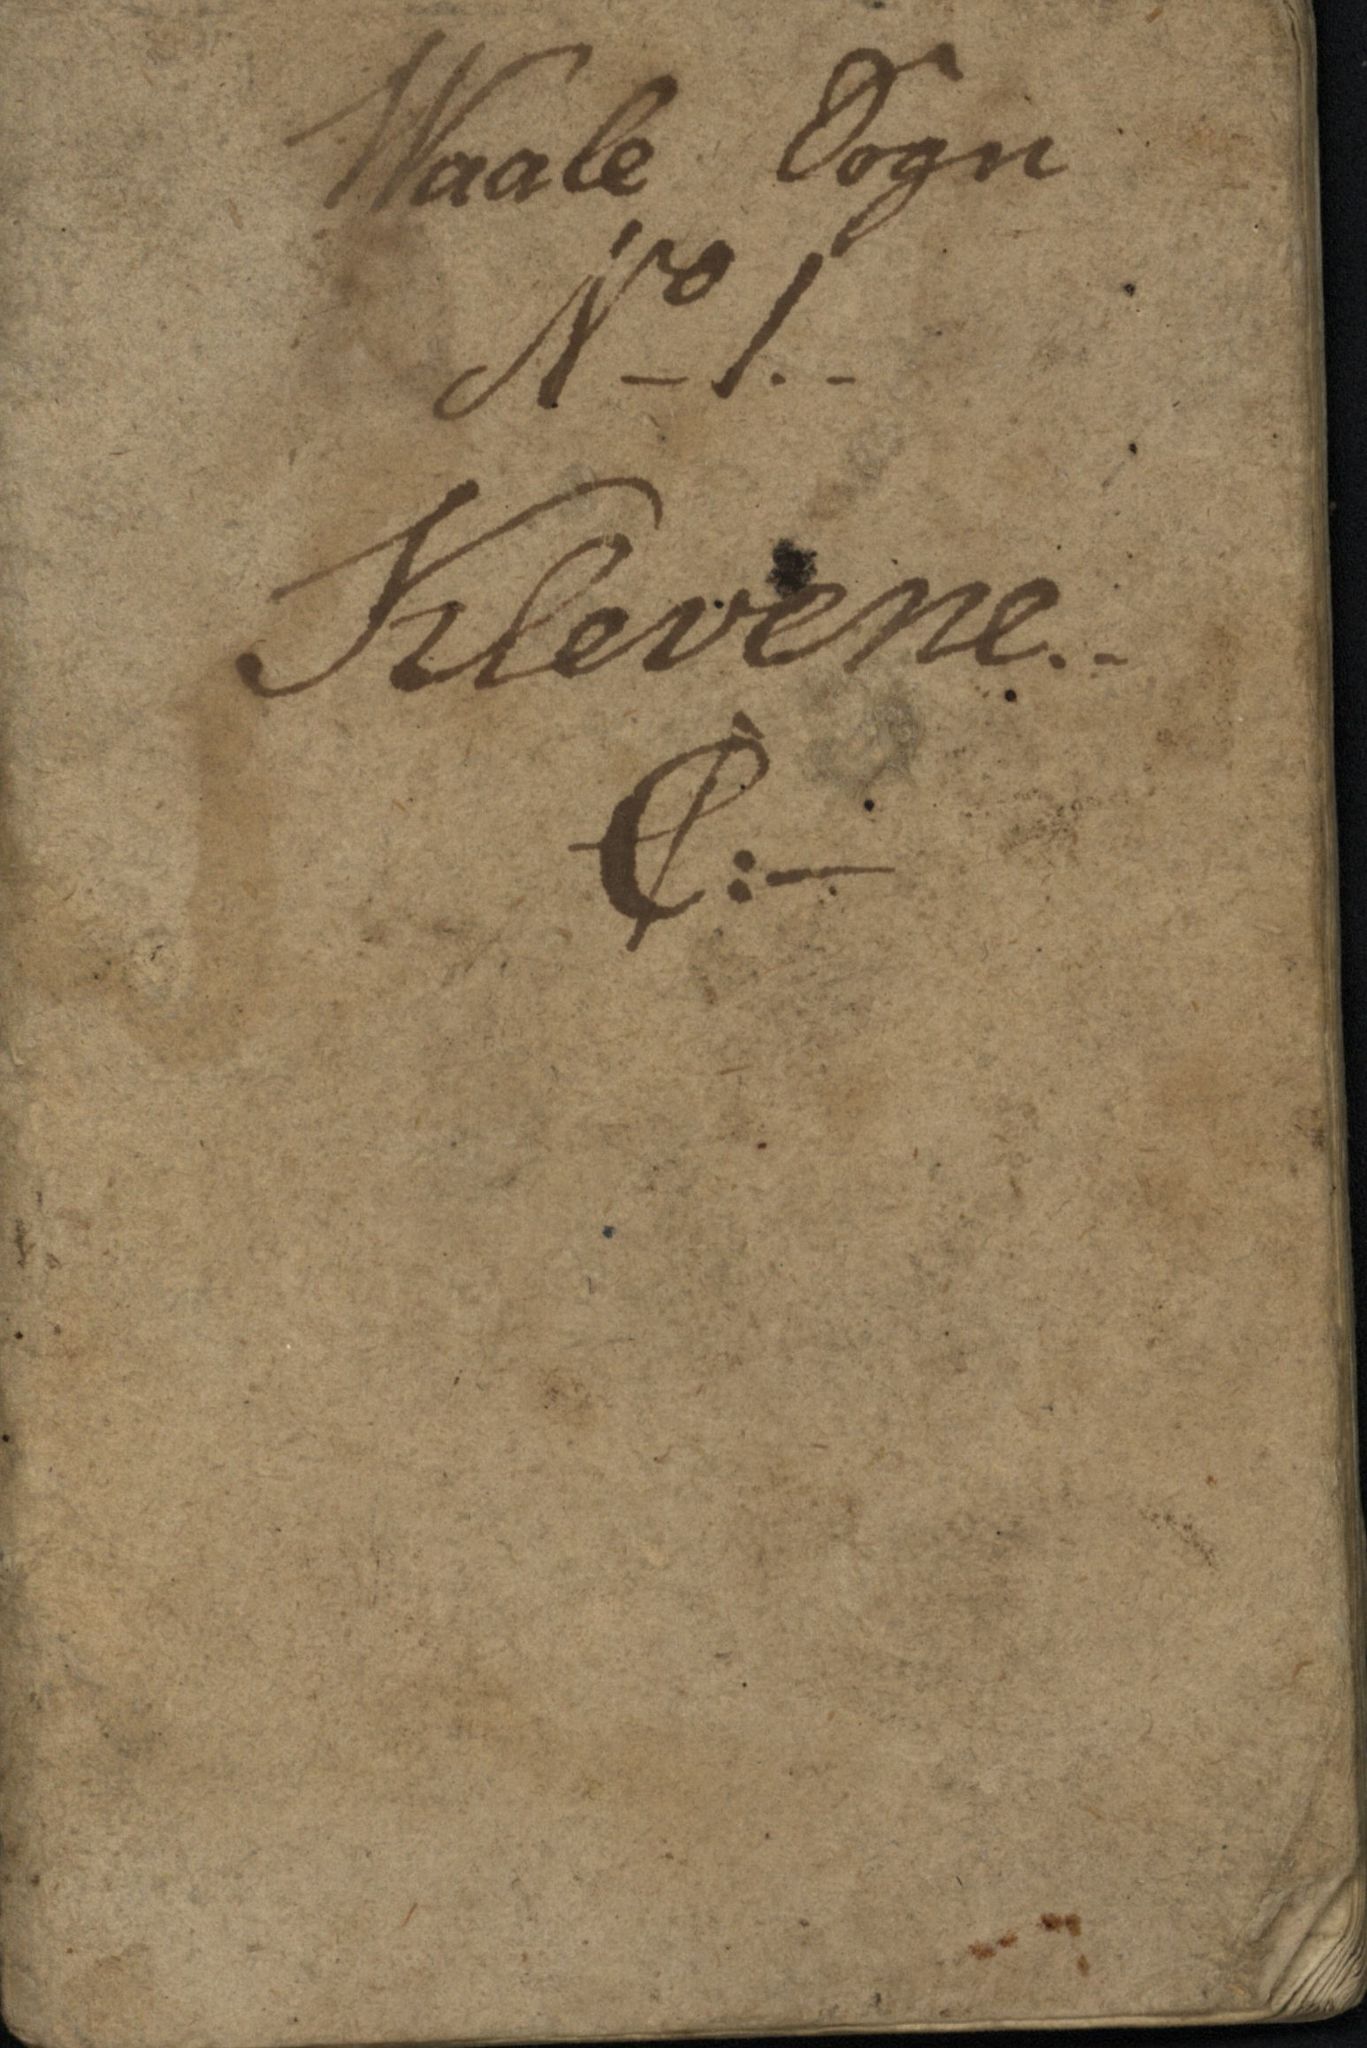 Waale Sogn
No 1.-
Klevene.-
C:-